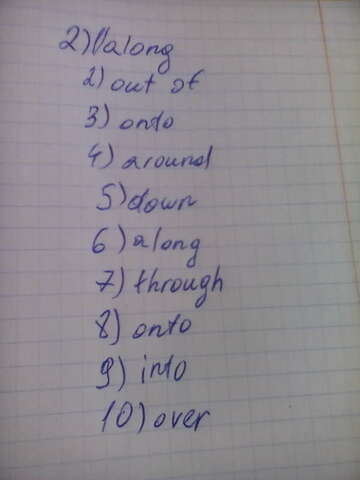 2)1)along
2) out of
3) onto
4) around
5) down
6) along
7) through
8) onto
9) into
10) over